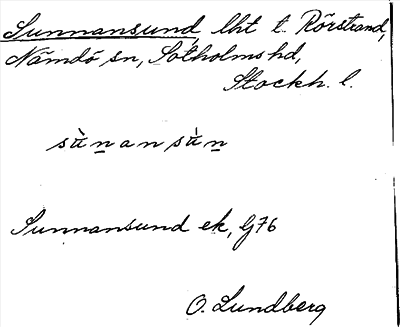 Sunnansund, lht t. Rörstrand,
Nämdö sn, Sotholms hd,
Stockh. l.
sùnansùn
Sunnansund ek, G76
O. Lundberg